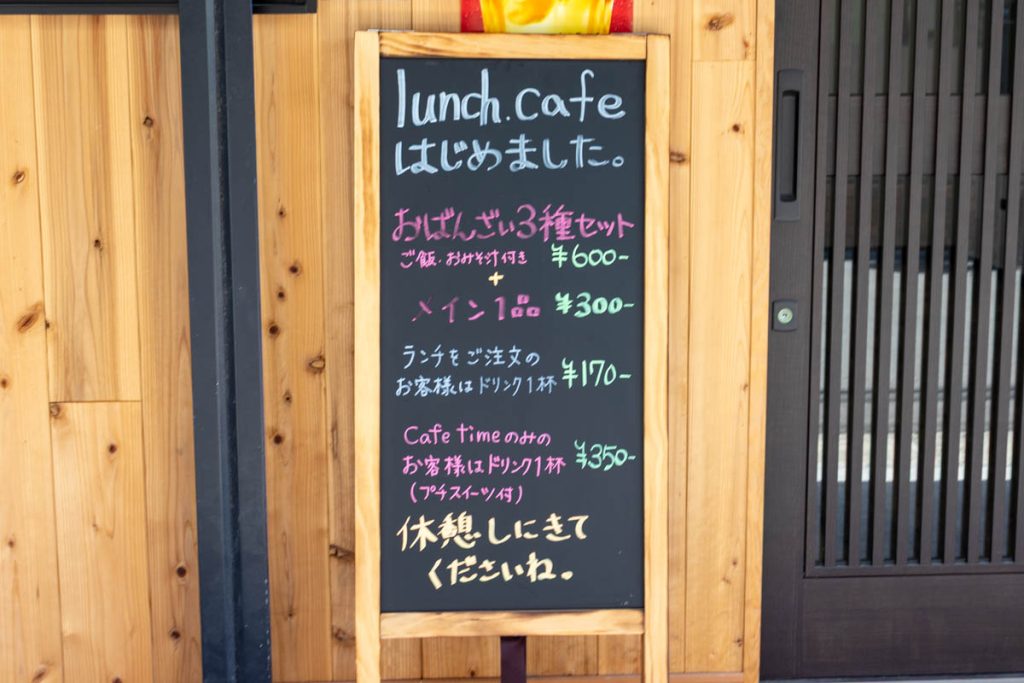 lunch.cafe
はじめました。
おばんざい3種セット
ご飯・おみそ汁付き ¥600-
+
メイン1品 ¥300-
ランチをご注文の
お客様はドリンク1杯 ¥170-
Cafe timeのみの
お客様はドリンク1杯 ¥350-
(プチスイーツ付)
休憩しにきて
くださいね。